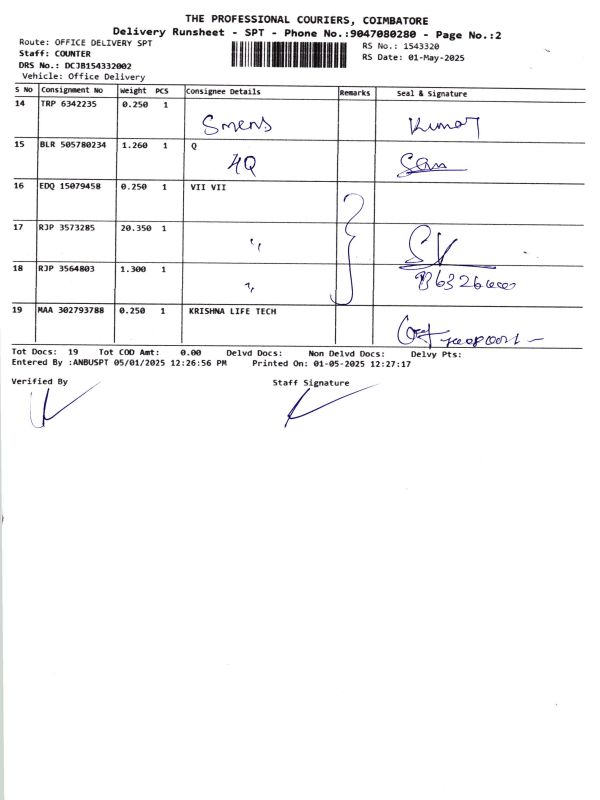 THE PROFESSIONAL COURIERS, COIMBATORE
Delivery Runsheet - SPT - Phone No.:9047080280 - Page No.:2
Route: OFFICE DELIVERY SPT
Staff: COUNTER
DRS No.: DCJB154332002
Vehicle: Office Delivery
RS No.: 1543320
RS Date: 01-May-2025
S No Consignment No Weight PCS Consignee Details Remarks Seal & Signature
14 TRP 6342235 0.250 1
Smens Kumar
15 BLR 505780234 1.260 1 Q
4Q
16 EDQ 15079458 0.250 1 VII VII
17 RJP 3573285 20.350 1
"
18 RJP 3564803 1.300 1
"
19 MAA 302793788 0.250 1 KRISHNA LIFE TECH
Tot Docs: 19 Tot COD Amt: 0.00 Delvd Docs: Non Delvd Docs: Delvy Pts:
Entered By :ANBUSPT 05/01/2025 12:26:56 PM Printed On: 01-05-2025 12:27:17
Verified By Staff Signature